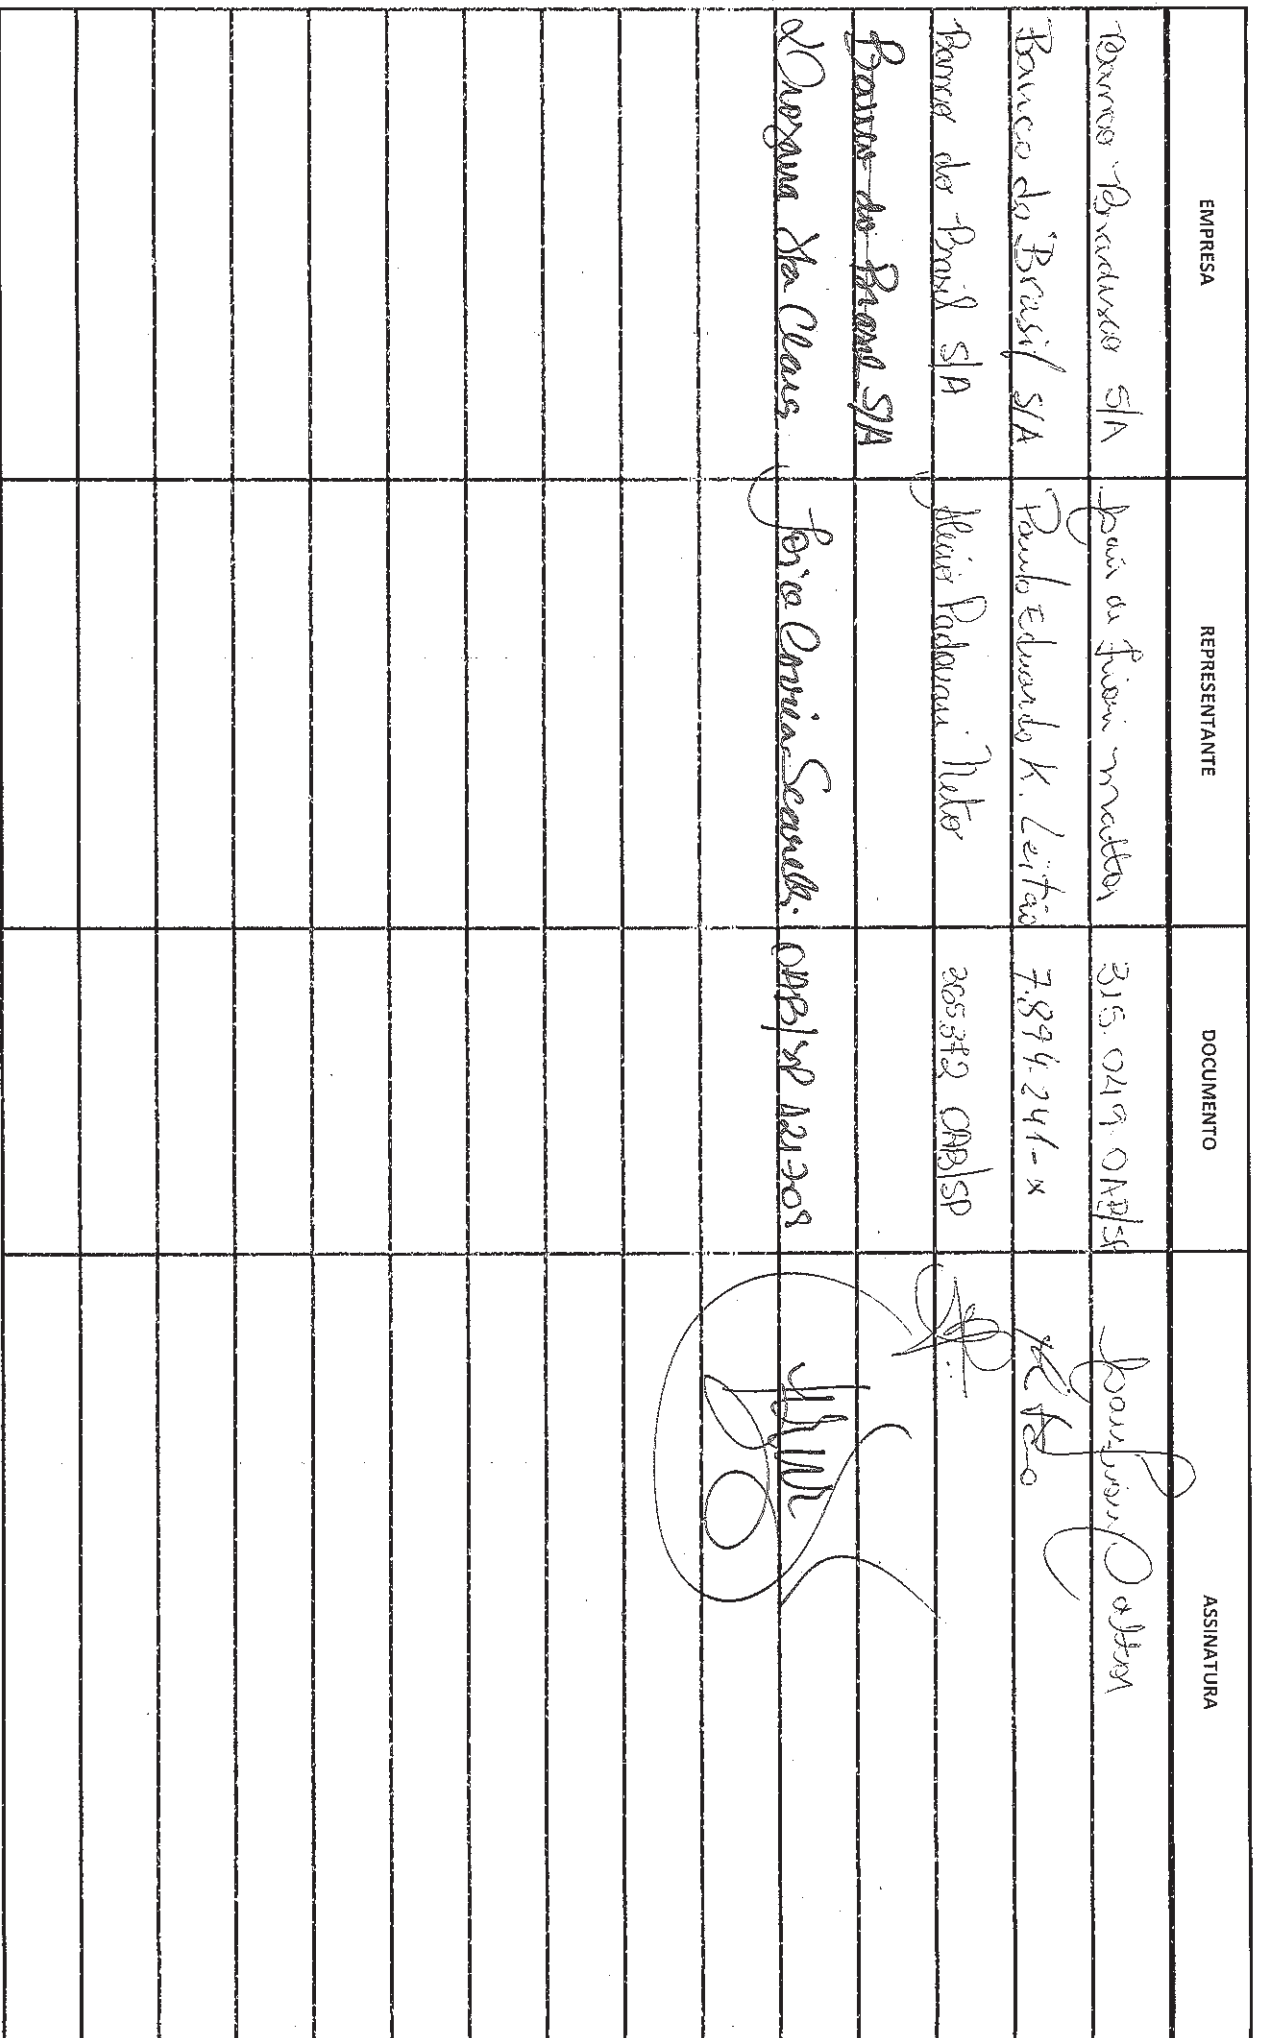 EMPRESA REPRESENTANTE DOCUMENTO ASSINATURA
Banco Bradesco S/A de Fiori Mattos 315.049 OAB/SP
Banco do Brasil S/A Paulo Eduardo K. Leitão 7.894.241-x
Banco do Brasil S/A Alécio Padovani Neto 265.372 OAB/SP
Banco do Brasil S/A
Sta Clara Correia OAB/SP 121.709